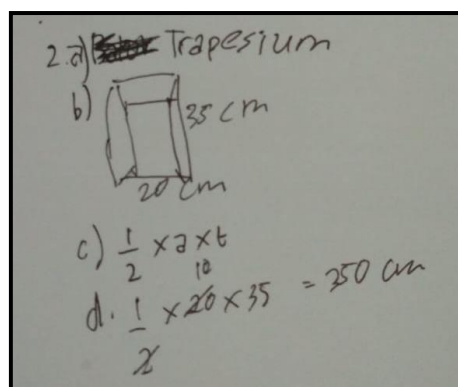 2. a) Trapesium
b)
35 cm
20 cm
c) 1/2 x a x t
10
d. 1/2 x 20 x 35 = 350 cm